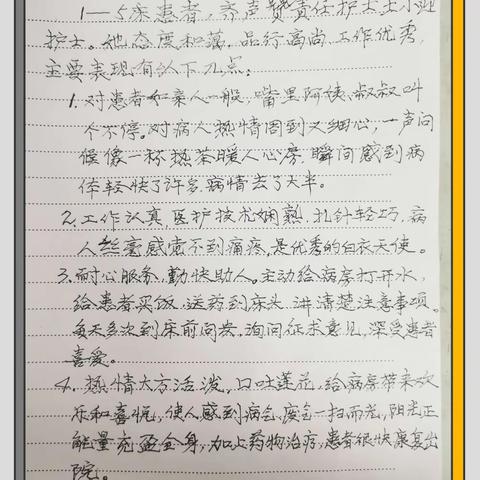 1—5床患者,齐声赞责任护士王小姐
护士。她态度和蔼,品行高尚,工作优秀,
主要表现有以下几点:
1.对患者如亲人一般,嘴里阿姨、叔叔叫
个不停。对病人热情周到又细心,一声问
候像一杯热茶暖人心房,瞬间感到病
体轻快了许多,病情去了大半。
2.工作认真,医护技术娴熟,扎针轻巧,病
人丝毫感觉不到痛疼,是优秀的白衣天使。
3.耐心服务,勤快助人。主动给病房打开水,
给患者买饭,送药到床头,讲清楚注意事项。
每天多次到床前问安,询问征求意见,深受患者
喜爱。
4.热情大方活泼,口吐莲花,给病房带来欢
乐和喜悦,使人感到病气、废气一扫而光,阳光正
能量充盈全身,加上药物治疗,患者很快康复出
院。